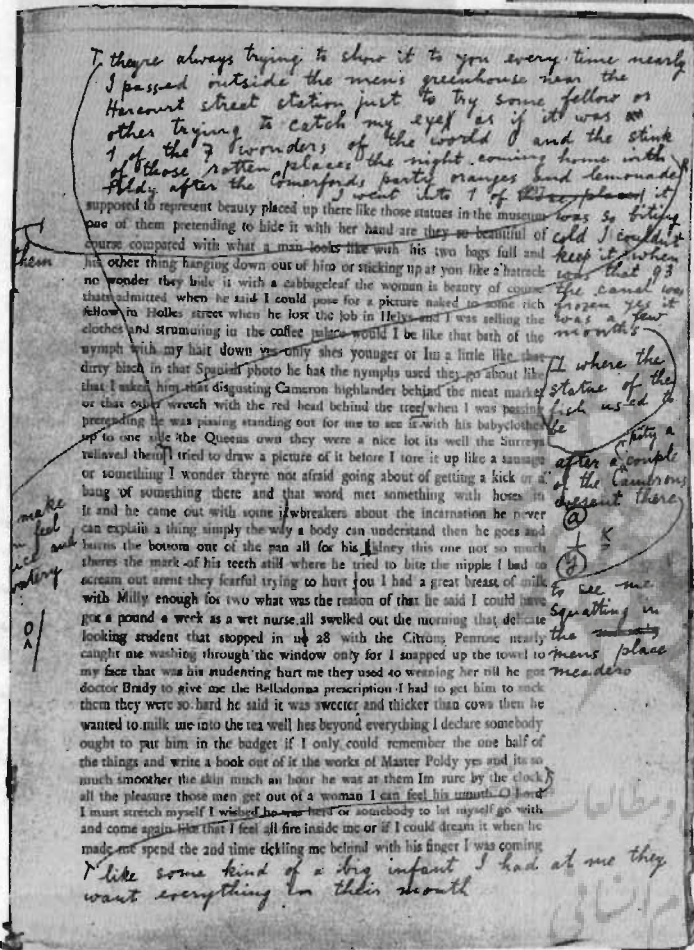 T theyre always trying to show it to you every time nearly
I passed outside the mens greenhouse near the
Harcourt street station just to try some fellow or
other trying to catch my eye as if it was
1 of the 7 wonders of the world O and the stink
of those rotten places the night coming home with
Poldy after the Comerfords party oranges and lemonade
I went into 1 of those places it
was so biting
cold I couldnt
keep it when
was that 93
the canal was
frozen yes it
was a few
months
them
supposed to represent beauty placed up there like those statues in the museum
one of them pretending to hide it with her hand are they so beautiful of
course compared with what a man looks like with his two bags full and
his other thing hanging down out of him or sticking up at you like a hatrack
no wonder they hide it with a cabbageleaf the woman is beauty of course
thats admitted when he said I could pose for a picture naked to some rich
fellow in Holles street when he lost the job in Helys and I was selling the
clothes and strumming in the coffee palace would I be like that bath of the
nymph with my hair down yes only shes younger or Im a little like that
dirty bitch in that Spanish photo he has the nymphs used they go about like
that I asked him that disgusting Cameron highlander behind the meat market
or that other wretch with the red head behind the tree when I was passing
pretending he was pissing standing out for me to see it with his babyclothes
up to one side the Queens own they were a nice lot its well the Surreys
relieved them I tried to draw a picture of it before I tore it up like a sausage
or something I wonder theyre not afraid going about of getting a kick or a
bang of something there and that word met something with hoses in
It and he came out with some jawbreakers about the incarnation he never
can explain a thing simply the way a body can understand then he goes and
burns the bottom out of the pan all for his kidney this one not so much
theres the mark of his teeth still where he tried to bite the nipple I had to
scream out arent they fearful trying to hurt you I had a great breast of milk
with Milly enough for two what was the reason of that he said I could have
got a pound a week as a wet nurse all swelled out the morning that delicate
looking student that stopped in no 28 with the Citrons Penrose nearly
caught me washing through the window only for I snapped up the towel to
my face that was his studenting hurt me they used to weaning her till he got
doctor Brady to give me the Belladonna prescription I had to get him to suck
them they were so hard he said it was sweeter and thicker than cows then he
wanted to milk me into the tea well hes beyond everything I declare somebody
ought to put him in the budget if I only could remember the one half of
the things and write a book out of it the works of Master Poldy yes and its so
much smoother the skin much an hour he was at them Im sure by the clock
all the pleasure those men get out of a woman I can feel his mouth O Lord
I must stretch myself I wished he was here or somebody to let myself go with
and come again like that I feel all fire inside me or if I could dream it when he
made me spend the 2nd time tickling me behind with his finger I was coming
T where the
statue of the
fish used to
be
pity a
after a couple
of the Camerons
to see me
squatting in
the
mens place
meadero
make
feel
and
watery
T like some kind of a big infant I had at me they
want everything in their mouth